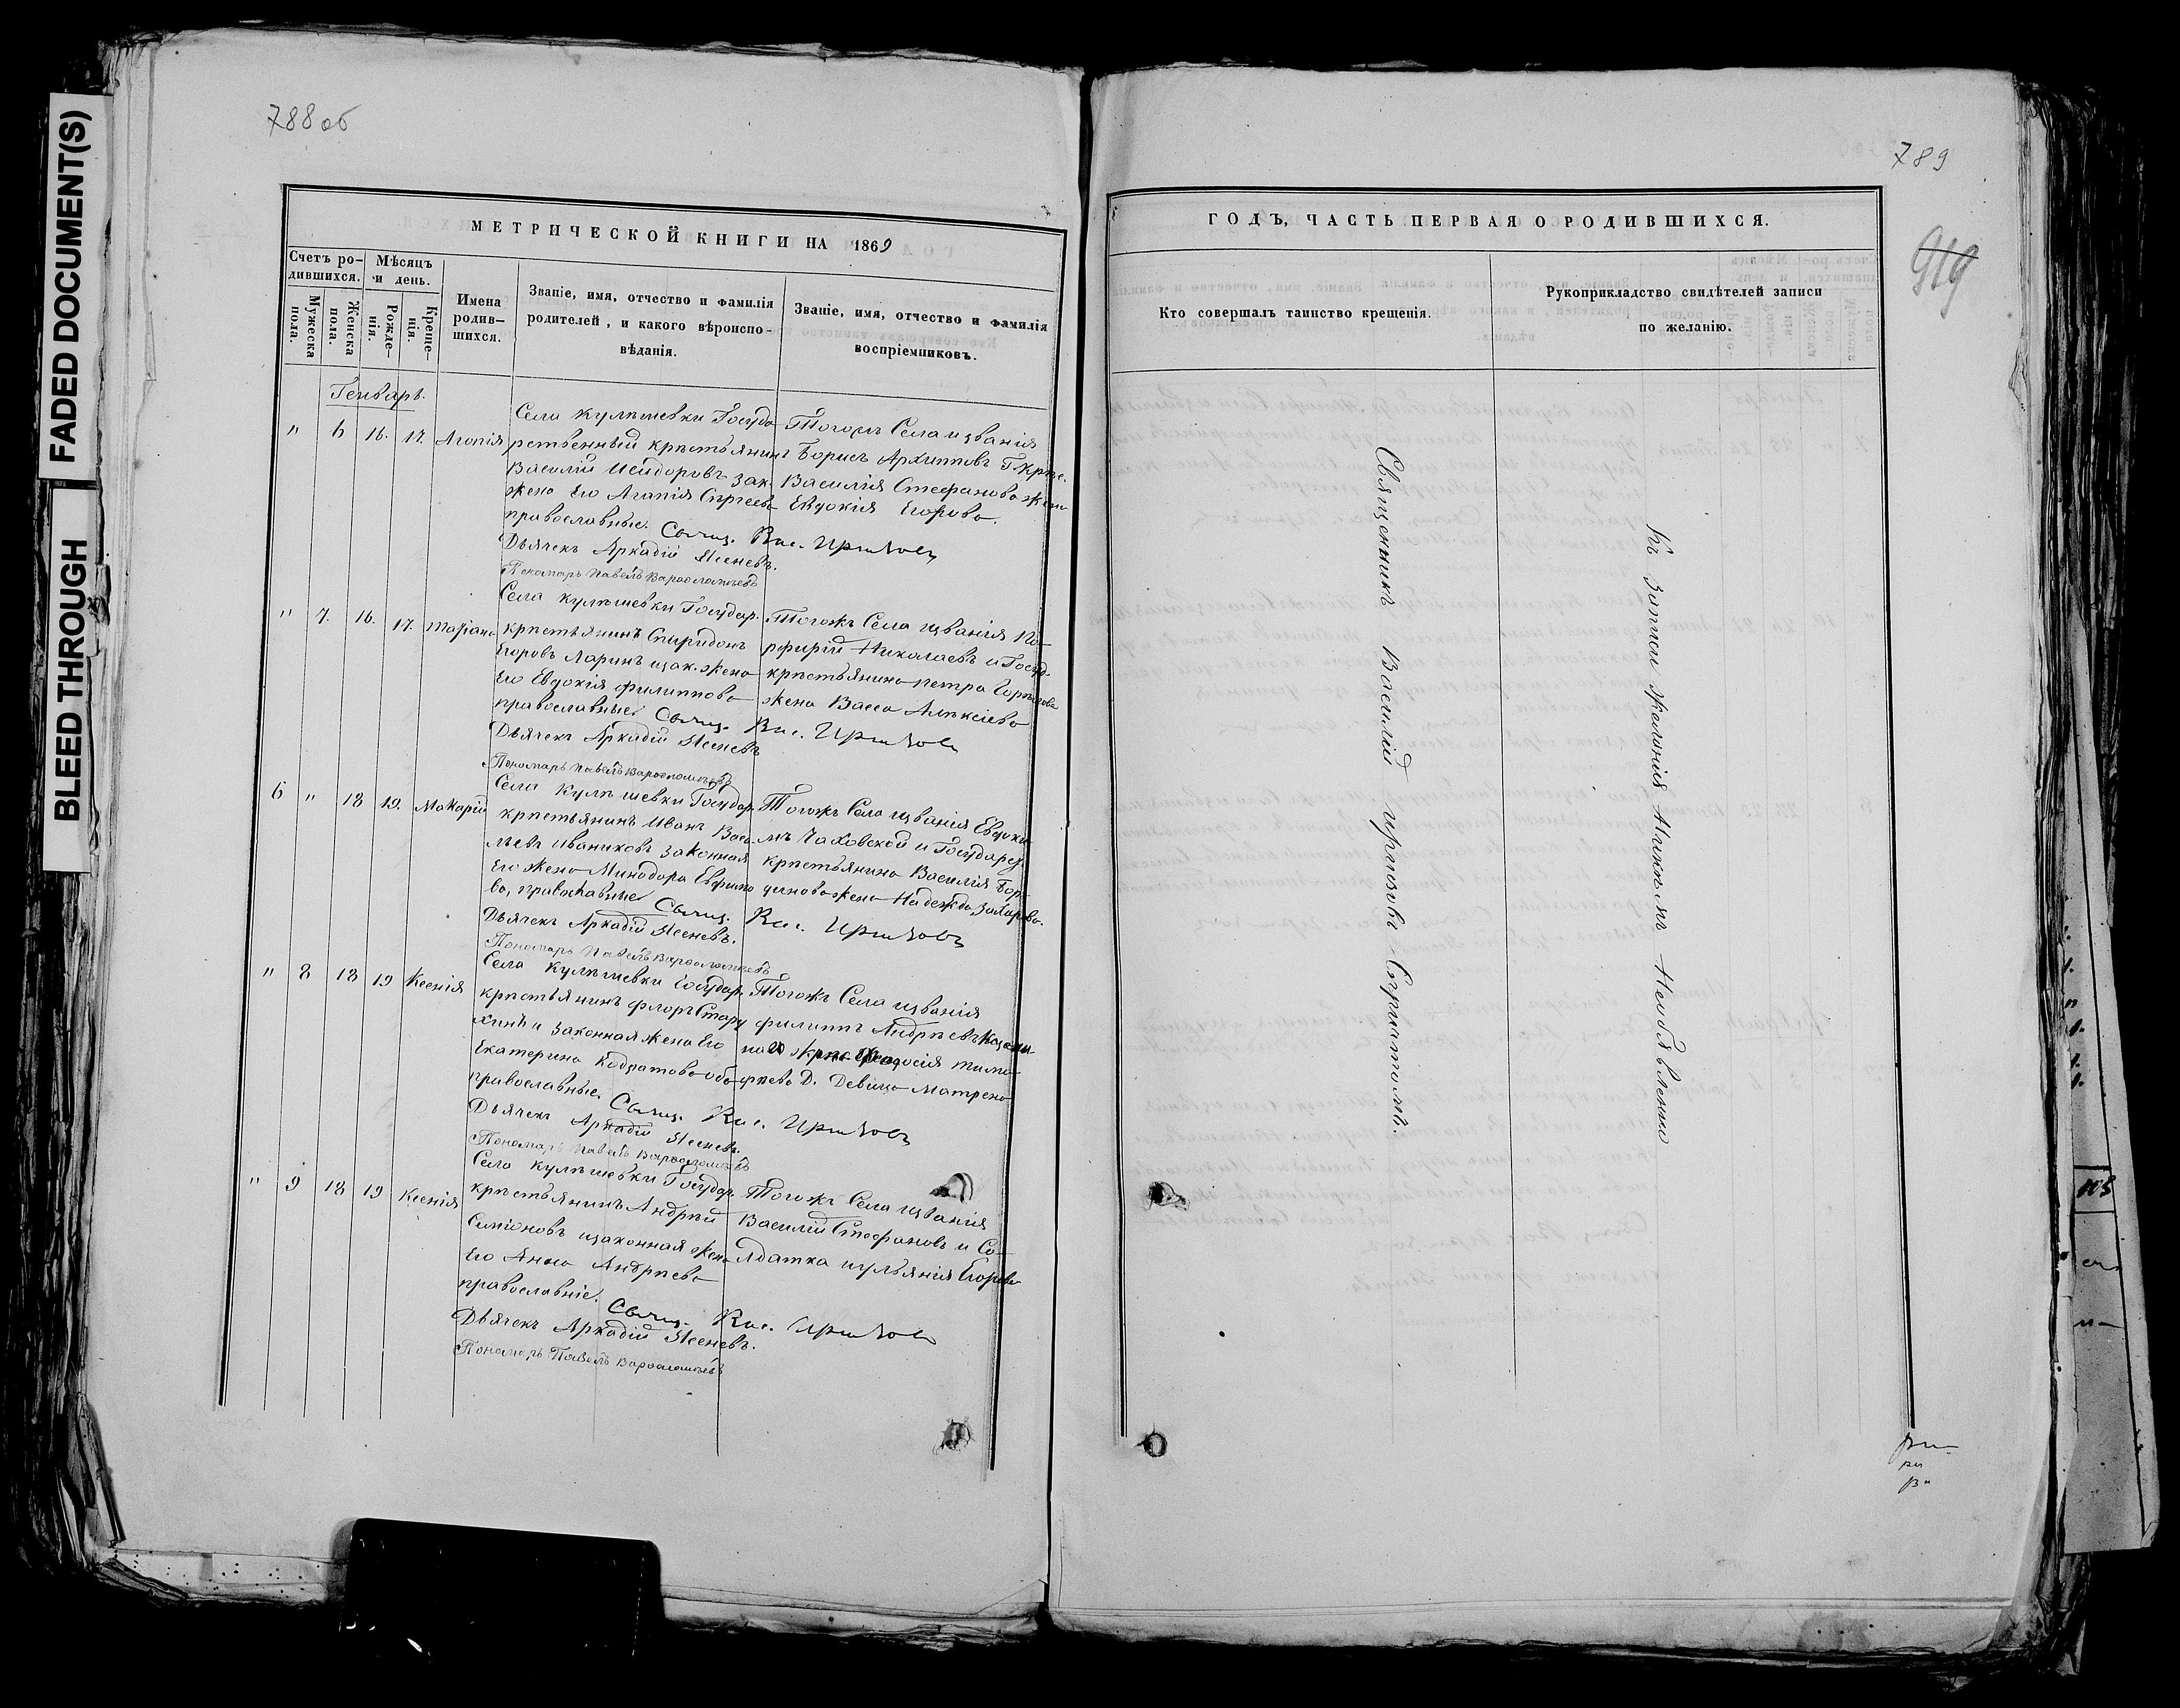 FADED DOCUMENT(S)
BLEED THROUGH
788 об
МЕТРИЧЕСКОЙ КНИГИ НА 1869
Счетъ ро-
дившихся.
Мужеска
пола.
Женска
пола.
Мѣсяцъ
и день.
Рожде-
нія.
Креще-
нія.
Имена
родив-
шихся.
Званіе, имя, отчество и фамилія
родителей, и какого вѣроиспо-
вѣданія.
Званіе, имя, отчество и фамилія
воспріемниковъ.
Генварь.
" 6 16. 17. Агопія
Села Кулѣшевки Госуда
рственный крѣстьянинъ
Василій Исидоровъ зак.
жена Его Агапія Сѣргеева
православные.
Свящ. Вас. Иризовъ
Дьячекъ Аркадій Ясеневъ.
Пономарь Павелъ Варѳоломѣевъ
Тогожъ Села и званія
Борисъ Архиповъ Г. крѣс.
Василія Стефанова жена
Евдокія Егорова.
" 7. 16. 17. Татіана
Села Кулѣшевки Государ.
крѣстьянинъ Спиридонъ
Егоровъ Ларинъ и зак. жена
Его Евдокія Филиппова
православные
Свящ. Вас. Иризовъ
Дьячекъ Аркадій Ясеневъ
Пономарь Павелъ Варѳоломѣевъ
Тогожъ Села и званія По-
рфирій Николаевъ и Госуд.
крѣстьянина Петра
жена Васса Алѣксіева
6 " 18 19. Макарій
Села Кулѣшевки Государ.
крѣстьянинъ Иванъ Васи
льевъ Иваниковъ законная
Его жена Минодора Евфимо
ва, православные
Свящ. Вас. Иризовъ
Дьячекъ Аркадій Ясеневъ.
Пономарь Павелъ Варѳоломѣевъ
Тогожъ Села и званія Евдоки
мъ Чаховской и Государ.
крѣстьянина Василія Бор-
жена Надежда Захарова.
" 8 18 19 Ксенія
Села Кулѣшевки Государ.
крѣстьянинъ Флоръ Стару
хинъ и законная жена Его
Екатерина Кодратова оба
православные.
Свящ. Вас. Иризовъ
Дьячекъ Аркадій Ясеневъ.
Пономарь Павелъ Варѳоломѣевъ
Тогожъ Села и званія
Филиппъ Андрѣевъ
Тимо-
фѣева Д. Девица Матрена
" 9 18 19 Ксенія
Села Кулѣшевки Государ.
крѣстьянинъ Андрѣй
Симіоновъ и законная жена
Его Анна Андрѣева
православніе.
Свящ. Вас. Иризовъ
Дьячекъ Аркадій Ясеневъ.
Пономарь Павелъ Варѳоломѣевъ
Тогожъ Села и званія
Василій Стефановъ и Со-
лдатка Иульянія Егорова
789
919
ГОДЪ, ЧАСТЬ ПЕРВАЯ О РОДИВШИХСЯ.
Кто совершалъ таинство крещенія.
Рукоприкладство свидѣтелей записи
по желанію.
Священникъ Василій Иризовъ Съ причтомъ.
Къ записи желанія Никѣмъ Необъявленно